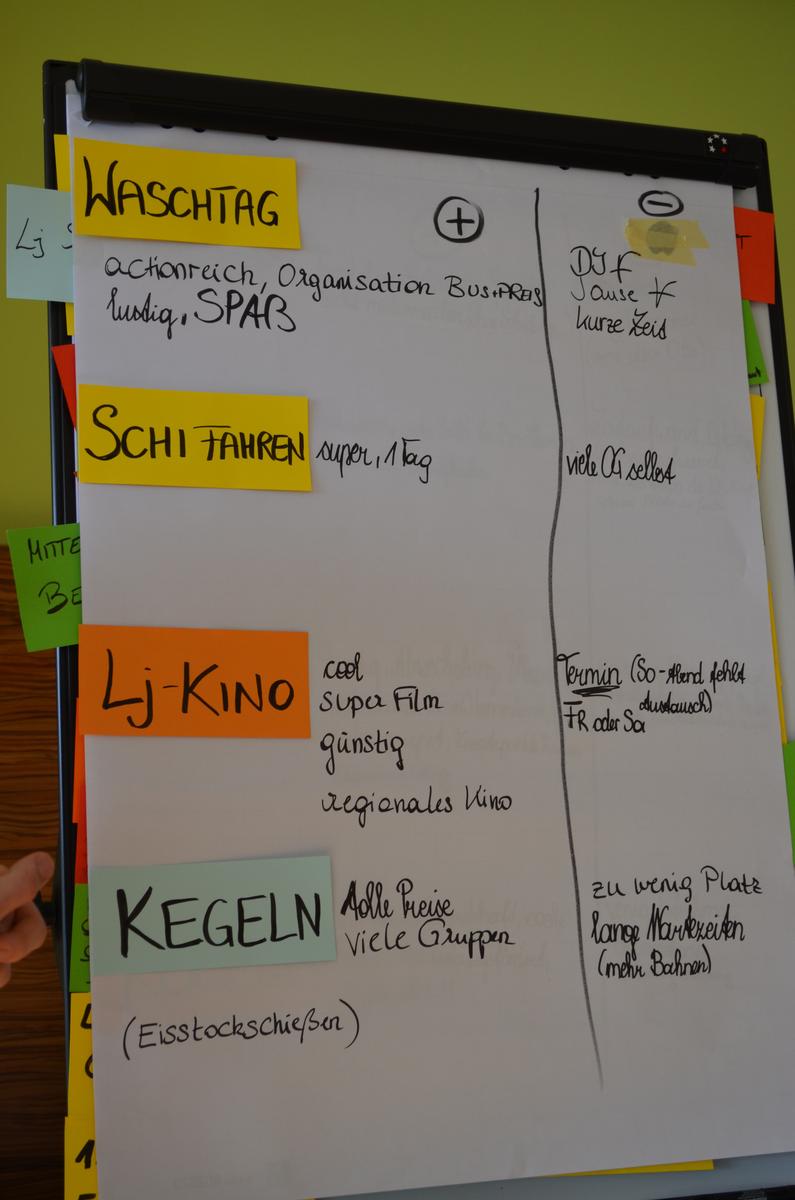 WASCHTAG
+
-
actionreich, Organisation BUS+PREIS
lustig, SPAß
DJ
Jause
kurze Zeit
SCHIFAHREN
super, 1 Tag
viele OG selbst
Lj-KINO
cool
super Film
günstig
regionales Kino
Termin (So-Abend fehlt
Austausch)
FR oder Sa
KEGELN
tolle Preise
viele Gruppen
zu wenig Platz
lange Wartezeiten
(mehr Bahnen)
(Eisstockschießen)
Lj
MITTE
BE